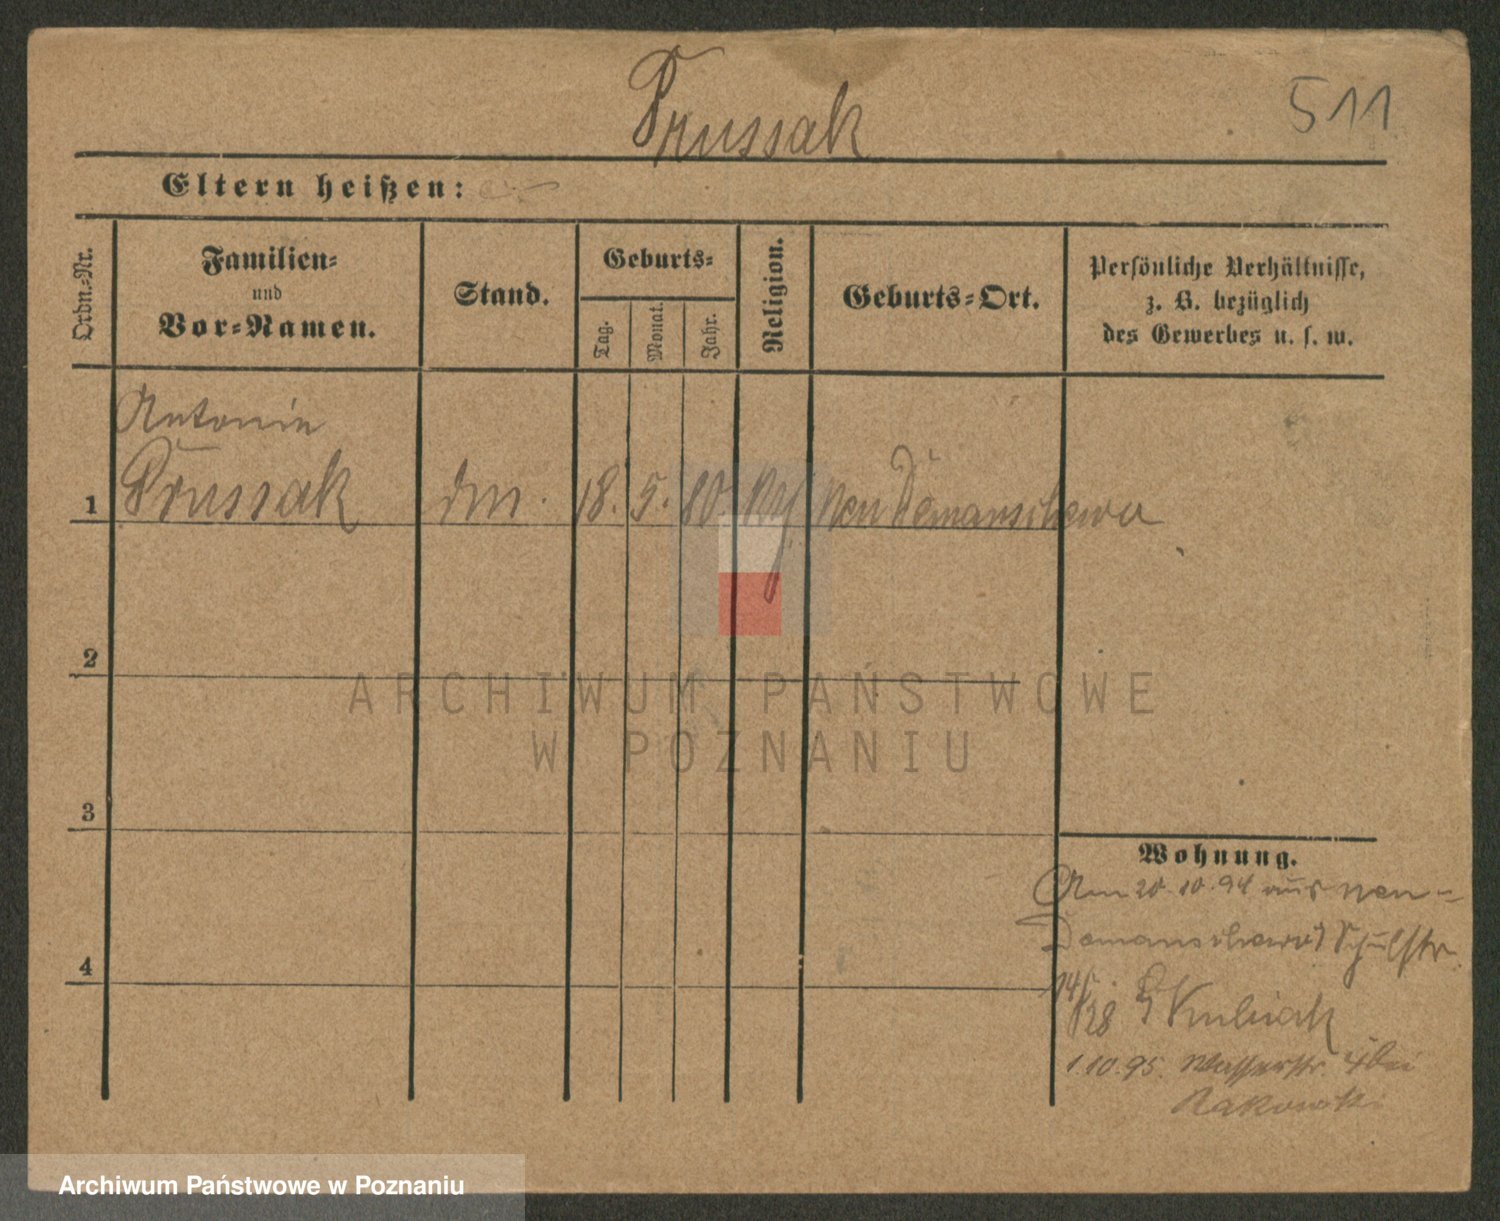 Prussak
511
Eltern heißen:
Ordn.-Nr.
Familien-
und
Vor-Namen.
Stand.
Geburts-
Tag.
Monat.
Jahr.
Religion.
Geburts-Ort.
Persönliche Verhältnisse,
z. B. bezüglich
des Gewerbes u. s. w.
Antonie
1 Prussak 18. 5. 80 Neu Demanschewo
2
3
4
Wohnung.
Am 20.10.94 aus Neu-
Demanschewo Schulstr.
14/
28 Kubiak
1.10.95. Wasserstr. 4 bei
Rakowski
ARCHIWUM PAŃSTWOWE
W POZNANIU
Archiwum Państwowe w Poznaniu